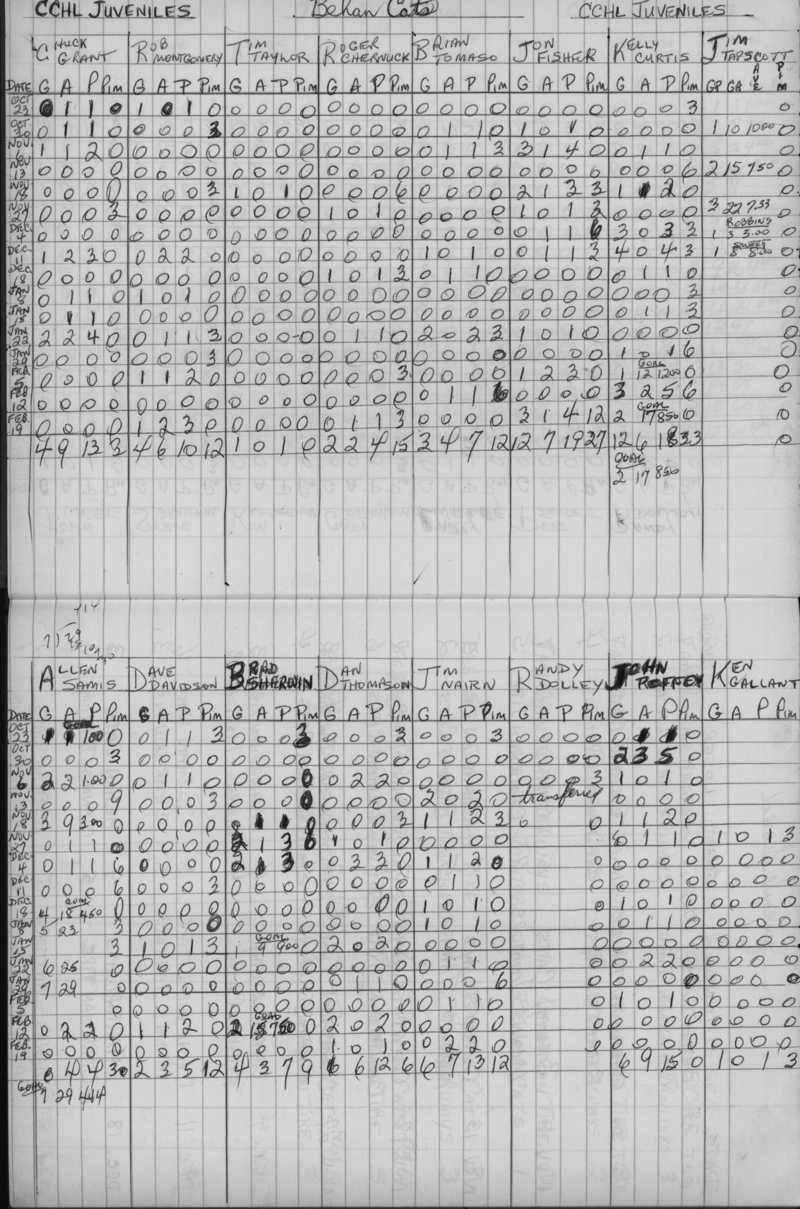 CCHL JUVENILES Behan Cats CCHL JUVENILES
CHUCK GRANT ROB MONTGOMERY TIM TAYLOR ROGER CHERNUCK BRIAN TOMASO JON FISHER KELLY CURTIS JIM TAPSCOTT
DATE G A P Pim G A P Pim G A P Pim G A P Pim G A P Pim G A P Pim G A P Pim GP GA AVE PIM
OCT 23 0 1 1 0 1 0 1 0 0 0 0 0 0 0 0 0 0 0 0 0 0 0 0 0 0 0 0 3 0
OCT 30 0 1 1 0 0 0 0 3 0 0 0 0 0 0 0 0 0 1 1 0 1 0 1 0 0 0 0 0 1 10 1000 0
NOV 6 1 1 2 0 0 0 0 0 0 0 0 0 0 0 0 0 0 1 1 3 3 1 4 0 0 1 1 0 0
NOV 13 0 0 0 0 0 0 0 0 0 0 0 0 0 0 0 0 0 0 0 0 0 0 0 0 0 0 0 6 2 15 7 50 0
NOV 18 0 0 0 0 0 0 0 3 1 0 1 0 0 0 0 6 0 0 0 0 2 1 3 3 1 1 2 0 0
NOV 27 0 0 0 3 0 0 0 0 0 0 0 0 1 0 1 0 0 0 0 0 1 0 1 3 0 0 0 0 3 22 7.33 0
ROBBINS
DEC 4 0 0 0 0 0 0 0 0 0 0 0 0 0 0 0 0 0 0 0 0 0 1 1 6 3 0 3 3 1 3 3.00 0
SWEET
DEC 11 1 2 3 0 0 2 2 0 0 0 0 0 0 0 0 0 1 0 1 0 0 1 1 3 4 0 4 3 1 8 8.00 0
DEC 18 0 0 0 0 0 0 0 0 0 0 0 0 1 0 1 3 0 1 1 0 0 0 0 0 0 1 1 0 0
JAN 8 0 1 1 0 1 0 1 0 0 0 0 0 0 0 0 0 0 0 0 0 0 0 0 0 0 0 0 3 0
JAN 15 0 1 1 0 0 0 0 0 0 0 0 0 0 0 0 0 0 0 0 0 0 0 0 0 0 1 1 3 0
JAN 22 2 2 4 0 0 1 1 3 0 0 0 0 0 1 1 0 2 0 2 3 1 0 1 0 0 0 0 0 0
JAN 29 0 0 0 0 0 0 0 3 0 0 0 0 0 0 0 0 0 0 0 0 0 0 0 0 1 0 1 6 0
GOAL
FEB 5 0 0 0 0 1 1 2 0 0 0 0 0 0 0 0 3 0 0 0 0 1 2 3 0 1 12 1200 0
FEB 12 0 0 0 0 0 0 0 0 0 0 0 0 0 0 0 0 0 1 1 6 0 0 0 0 3 2 5 6 0
GOAL
FEB. 19 0 0 0 0 1 2 3 0 0 0 0 0 0 1 1 3 0 0 0 0 3 1 4 12 2 17 850 0
4 9 13 3 4 6 10 12 1 0 1 0 2 2 4 15 3 4 7 12 12 7 19 27 12 6 18 33 0
GOAL
2 17 850
ALLEN SAMIS DAVE DAVIDSON BRAD SHERWIN DAN THOMPSON JIM NAIRN RANDY DOLLEY JOHN ROFFEY KEN GALLANT
DATE G A P Pim G A P Pim G A P Pim G A P Pim G A P Pim G A P Pim G A P Pim G A P Pim
GOAL
OCT 23 1 1 100 0 0 1 1 3 0 0 0 3 0 0 0 3 0 0 0 3 0 1 1 0
OCT 30 0 0 0 3 0 0 0 0 0 0 0 0 0 0 0 0 0 0 0 0 0 0 0 0 2 3 5 0
NOV 6 2 2 1.00 0 0 1 1 0 0 0 0 0 0 2 2 0 0 0 0 0 0 0 0 3 1 0 1 0
NOV. 13 0 0 0 9 0 0 0 3 0 0 0 0 0 0 0 0 2 0 2 0 transferred 0 0 0 0
NOV 18 3 9 300 0 0 0 0 0 0 1 1 0 0 0 0 3 1 1 2 3 0 0 1 1 2 0
NOV 27 0 1 1 0 0 0 0 0 2 1 3 6 1 0 1 0 0 0 0 0 0 1 1 0 1 0 1 3
DEC 4 0 1 1 6 0 0 0 0 2 1 3 0 0 3 3 0 1 1 2 0 0 0 0 0 0 0 0 0 0
DEC 11 0 0 0 6 0 0 0 3 0 0 0 0 0 0 0 0 0 1 1 0 0 0 0 0 0 0 0 0 0
GOAL
DEC 18 4 18 450 0 0 0 0 0 0 0 0 0 0 0 0 0 1 0 1 0 0 1 0 1 0 0 0 0 0
JAN 8 5 23 3 0 0 0 0 0 0 0 0 0 0 0 0 1 0 1 0 0 0 1 1 0 0 0 0 0
GOAL
JAN 15 3 1 0 1 3 1 9 900 0 2 0 2 0 0 0 0 0 0 0 0 0 0 0 0 0 0
JAN 22 6 25 0 0 0 0 0 0 0 0 0 0 0 0 0 0 1 1 0 0 0 2 2 0 0 0 0 0
JAN 29 7 29 0 0 0 0 0 0 0 0 0 0 1 1 0 0 0 0 6 0 0 0 0 0 0 0 0 0
FEB 5 0 0 0 0 0 0 0 0 0 0 0 0 0 0 1 1 0 0 1 0 1 0 0 0 0 0
GOAL
FEB 12 0 2 2 0 1 1 2 0 2 15 750 0 2 0 2 0 0 0 0 0 0 0 0 0 0 0 0 0 0
FEB. 19 0 0 0 0 0 0 0 0 0 0 0 0 1 0 1 0 0 2 2 0 0 0 0 0 0 0 0 0 0
0 4 4 30 2 3 5 12 4 3 7 9 6 6 12 6 6 7 13 12 6 9 15 0 1 0 1 3
GOAL 7 29 414